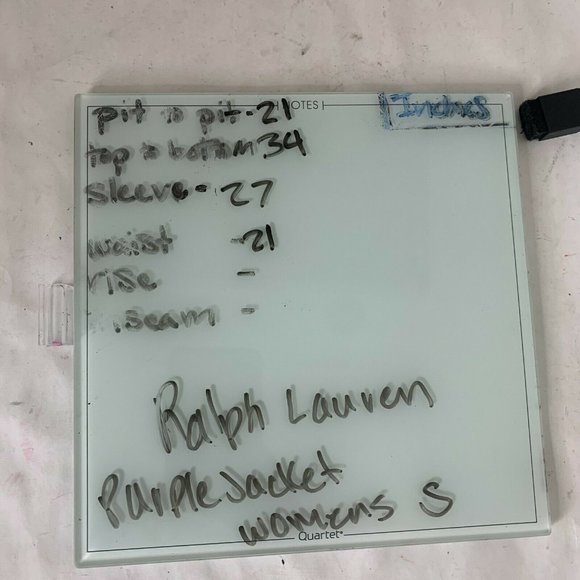 NOTES
Inches
pit to pit - 21
top to bottom 34
sleeve - 27
waist - 21
rise -
inseam -
Ralph Lauren
Purple Jacket
womens S
Quartet